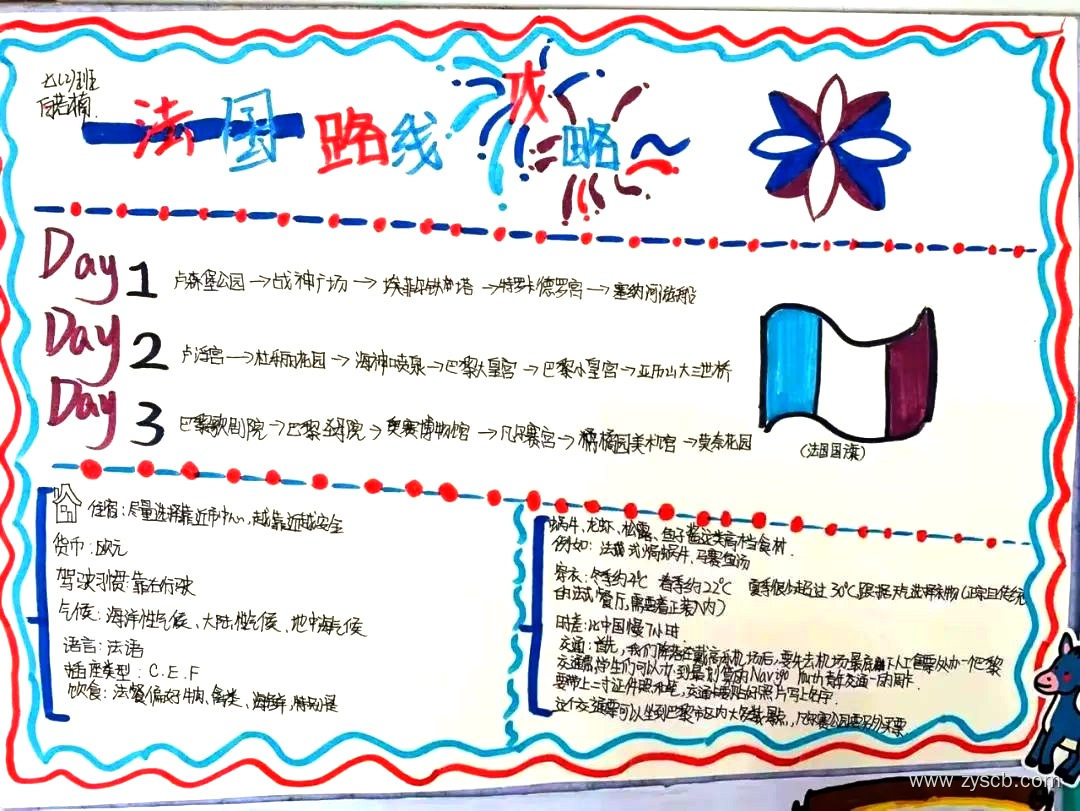 七(2)班
法国路线攻略~
Day 1 卢森堡公园→战神广场→埃菲尔铁塔→特罗卡德罗宫→塞纳河游船
Day 2 卢浮宫→杜乐丽花园→海神喷泉→巴黎大皇宫→巴黎小皇宫→亚历山大三世桥
Day 3 巴黎歌剧院→巴黎圣母院→奥赛博物馆→凡尔赛宫→橘园美术馆→莫奈花园
(法国国旗)
住宿:尽量选择靠近市中心,越靠近越安全
货币:欧元
驾驶习惯:靠右行驶
气候:海洋性气候、大陆性气候、地中海气候
语言:法语
插座类型:C.E.F
饮食:法餐偏好牛肉、禽类、海鲜,特别是
蜗牛、龙虾、松露、鱼子酱这类高档食材.
例如:法式焗蜗牛、马赛鱼汤
穿衣:冬季约4℃ 春季约22℃ 夏季很少超过30℃,跟据天气选择衣物(正穿且传统
的法式餐厅,需要着正装入内)
时差:比中国慢7小时
交通:首先,我们降落在戴高乐机场后,要先去机场
交通 学生们可以 到 Navigo
要带上二寸证件照和笔,交通卡要贴好照片写上名字.
这个交通票可以坐到巴黎市区内大多数景点,
www.zyscb.com